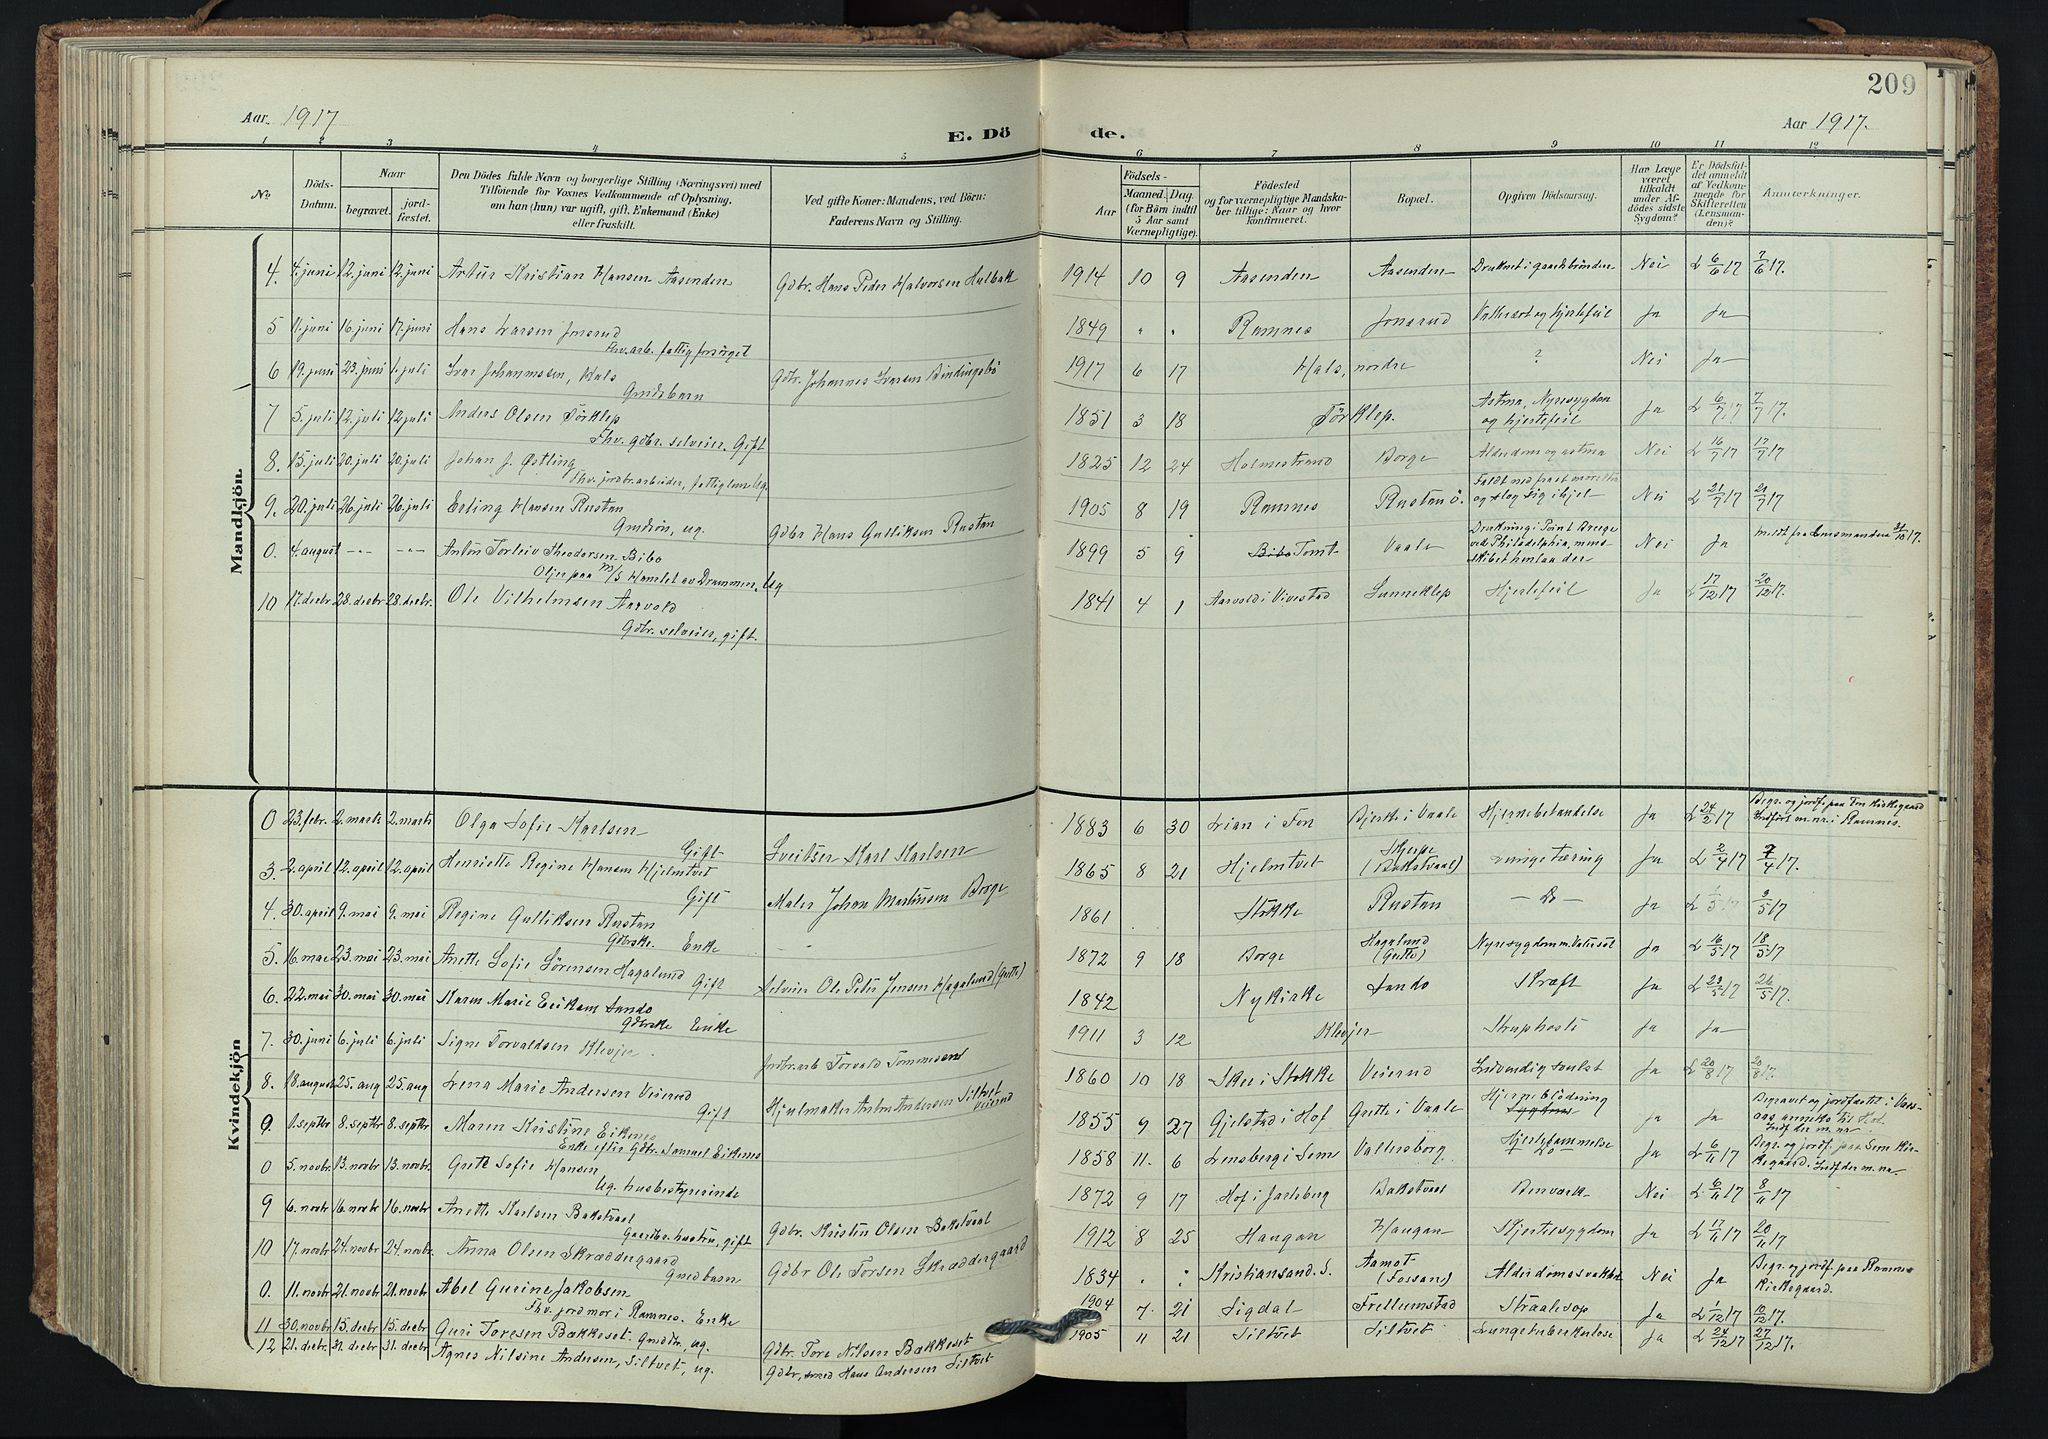 209
Aar. 1917
E. Dö
de.
Aar 1917.
1 2 3 4 5 6 7 8 9 10 11 12
No
Döds-
Datum.
Naar
begravet.
jord-
fæstet.
Den Dödes fulde Navn og borgerlige Stilling (Næringsvei) med
Tilföiende for Voxnes Vedkommende af Oplysning,
om han (hun) var ugift, gift, Enkemand (Enke)
eller fraskilt.
Ved gifte Koner: Mandens, ved Börn:
Faderens Navn og Stilling.
Födsels-
Aar
Maaned. Dag.
(for Börn indtil
5 Aar samt
Værnepligtige).
Födested
og for værnepligtige Mandska-
ber tillige: Naar og hvor
konfirmeret.
Bopæl.
Opgiven Dödsaarsag.
Har Læge
været
tilkaldt
under Af-
dödes sidste
Sygdom?
Er Dödsfal-
det anmeldt
af Vedkom-
mende for
Skifteretten
(Lensman-
den)?
Anmærkninger.
Mandkjön.
4. 4. juni 12. juni 12. juni Artur Kristian Hansen Aasenden Gdbr. Hans Peder Halvorsen Hulbak 1914 10 9 Aasenden Aasenden Druknet i gaardsbrönden Nei L 6/6 17 7/6 17.
5 11. juni 16. juni 17. juni Hans Larsen Jonsrud 1849 " " Ramnes Jonsrud Vattersot og hjertefeil Ja Ja
Fhv. arb. fattigforsörget
6 19. juni 23. juni 1. juli Ivar Johannssen, Hals Gdbr. Johannes Ivarsen Bindingsbö 1917 6 17 Hals, nordre ? Nei Ja
Gmdsbarn
7 5. juli 12. juli 12. juli Anders Olsen Törklep 1851 3 18 Törklep. Astma, Nyresygdom Ja L 6/7 17 7/7 17.
og hjertefeil
Fhv. gdbr. selveier. Gift
8. 15. juli 20. juli 20. juli Johan J. Østling 1825 12 24 Holmestrand Borge Alderdom og astma Nei L 16/7 17 17/7 17
Fhv. jordbr. arbeider, fattiglem Ug.
9. 20. juli 26. juli 26. juli Erling Hansen Rustan Gdbr Hans Gulliksen Rustan 1905 8 19 Ramnes Rustan ö. Faldt ned fra et
og slog sig ihjel Nei L 21/7 17 21/7 17
Gmdsön, ug.
0. 4. august -"- -"- Anton Torleiv Theodorsen Bibo 1899 5 9 Bibo Tomt Vaale Drukning i Point Breege
ved Philadelphia, mens
skibet henlaa der Nei Ja meldt fra Lensmanden 31/10 17.
Oljer paa M/S Hamlet av Drammen. Ug
10 17. decbr 28. decbr 28. decbr. Ole Vilhelmsen Aarvold 1841 4 1 Aarvold i Vivestad Sunneklep Hjertefeil Ja L 17/12 17 20/12 17.
Gdbr. selveier, gift.
Kvindekjön
0 23. febr. 2. marts 2. marts Olga Sofie Karlsen Sveitser Karl Karlsen 1883 6 30 Lian i Fon Bjerke i Vaale Hjernebetændelse Ja L 24/2 17 Begr. og jordf. paa Fon Kirkegaard
Indfört m. nr. i Ramnes.
Gift
3. 2. april 12. april 12. april Henriette Regine Hansen Hjelmtvet Maler Johan Martinsen Borge 1865 8 21 Hjelmtvet Skjerpe
(Bakstvaal) Lungetæring Ja L 2/4 17 7/4 17.
Gift
4. 30. april 9. mai 9. mai Regine Gulliksen Rustan -"- 1861 Stokke Rustan - Do - Ja L 1/5 17 2/5 17
Gdbrske. Enke
5. 16. mai 23. mai 23. mai Anette Sofie Sörensen Hagalund Selveier Ole Peter Jensen Hagalund (Grette) 1872 9 18 Borge Hagalund
(Grette) Nyresygdom m. Vatersot Ja L 16/5 17 18/5 17
Gift
6. 22. mai 30. mai 30. mai Karen Marie Eriksen Sando 1842 Nykirke Sando Kræft Ja L 23/5 17 26/5 17.
Gdbrske Enke
7. 30. juni 6. juli 6. juli Signe Torvaldsen Klevjer. Jordbr. arb Torvald Tommesen 1911 3 12 Klevjer Struphoste Ja Ja
8. 18. august 25. aug 25. aug Lena Marie Andersen Veierud Hjulmaker Anton Andersen Siltvet
Veierud 1860 10 18 Skee i Stokke Veierud Indvendig svulst Ja L 20/8 17 20/8 17.
Gift
9. 1. septbr 8. septbr 8. septbr Maren Kristine Eikenes 1855 9 27 Gjelstad i Hof Grette i Vaale Hjerneblödning Ja Ja Begravet og jordfæstet i Vaas-
aas annexs til Hof.
Indf der m. nr
Enke efter Gdbr. Samuel Eikenes
0 5. novbr 13. novbr 13. novbr. Grethe Sofie Hansen 1858 11. 6 Lensberg i Sem Vallersborg Hjertelammelse Ja L 6/11 17 Begr. og jordf. paa Sem Kir-
kegaard. Indf der m. nr
Ug. husbestyrerinde
9 6. novbr 16. novbr 16. novbr Anette Karlsen Bakstvaal Gdbr. Kristen Olsen Bakstvaal 1872 9 17 Hof i Jarlsberg Bakstvaal Benværk Nei L 6/11 17 8/11 17
Gaardbr. hustru, gift
10 17. novbr 24. novbr 24. novbr. Anna Olsen Skræddergaard Gdbr Ole Torsen Skræddergaard 1912 8 25 Haugan Haugan Hjertesygdom Ja L 17/11 17 20/11 17
Gmdbarn
0. 11. novbr 21. novbr 21. novbr Abel Gurine Jakobsen 1834 . : Kristiansand. S. Aamot
(Fossan) Alderdomssvakhet Nei Ja Begr. og jordf. paa Ramnes
Kirkegaard.
Fhv. jordmor i Ramnes. Enke
11 30. novbr 15. decbr 15. decbr Guri Toresen Bækkeset. Gmdtr. ug. Gdbr. Tore Nilsen Bækkeset 1904 7. 21 Sigdal Frellumstad Straalesop Ja L 1/12 17 10/12 17.
12 21. decbr 31. decbr 31. decbr. Agnes Nilsine Andersen, Siltvet, ug. Gdbr, smed Hans Andersen Siltvet 1905 11 21 Siltvet Siltvet Lungetuberkulose Ja L 24/12 17 27/12 17.